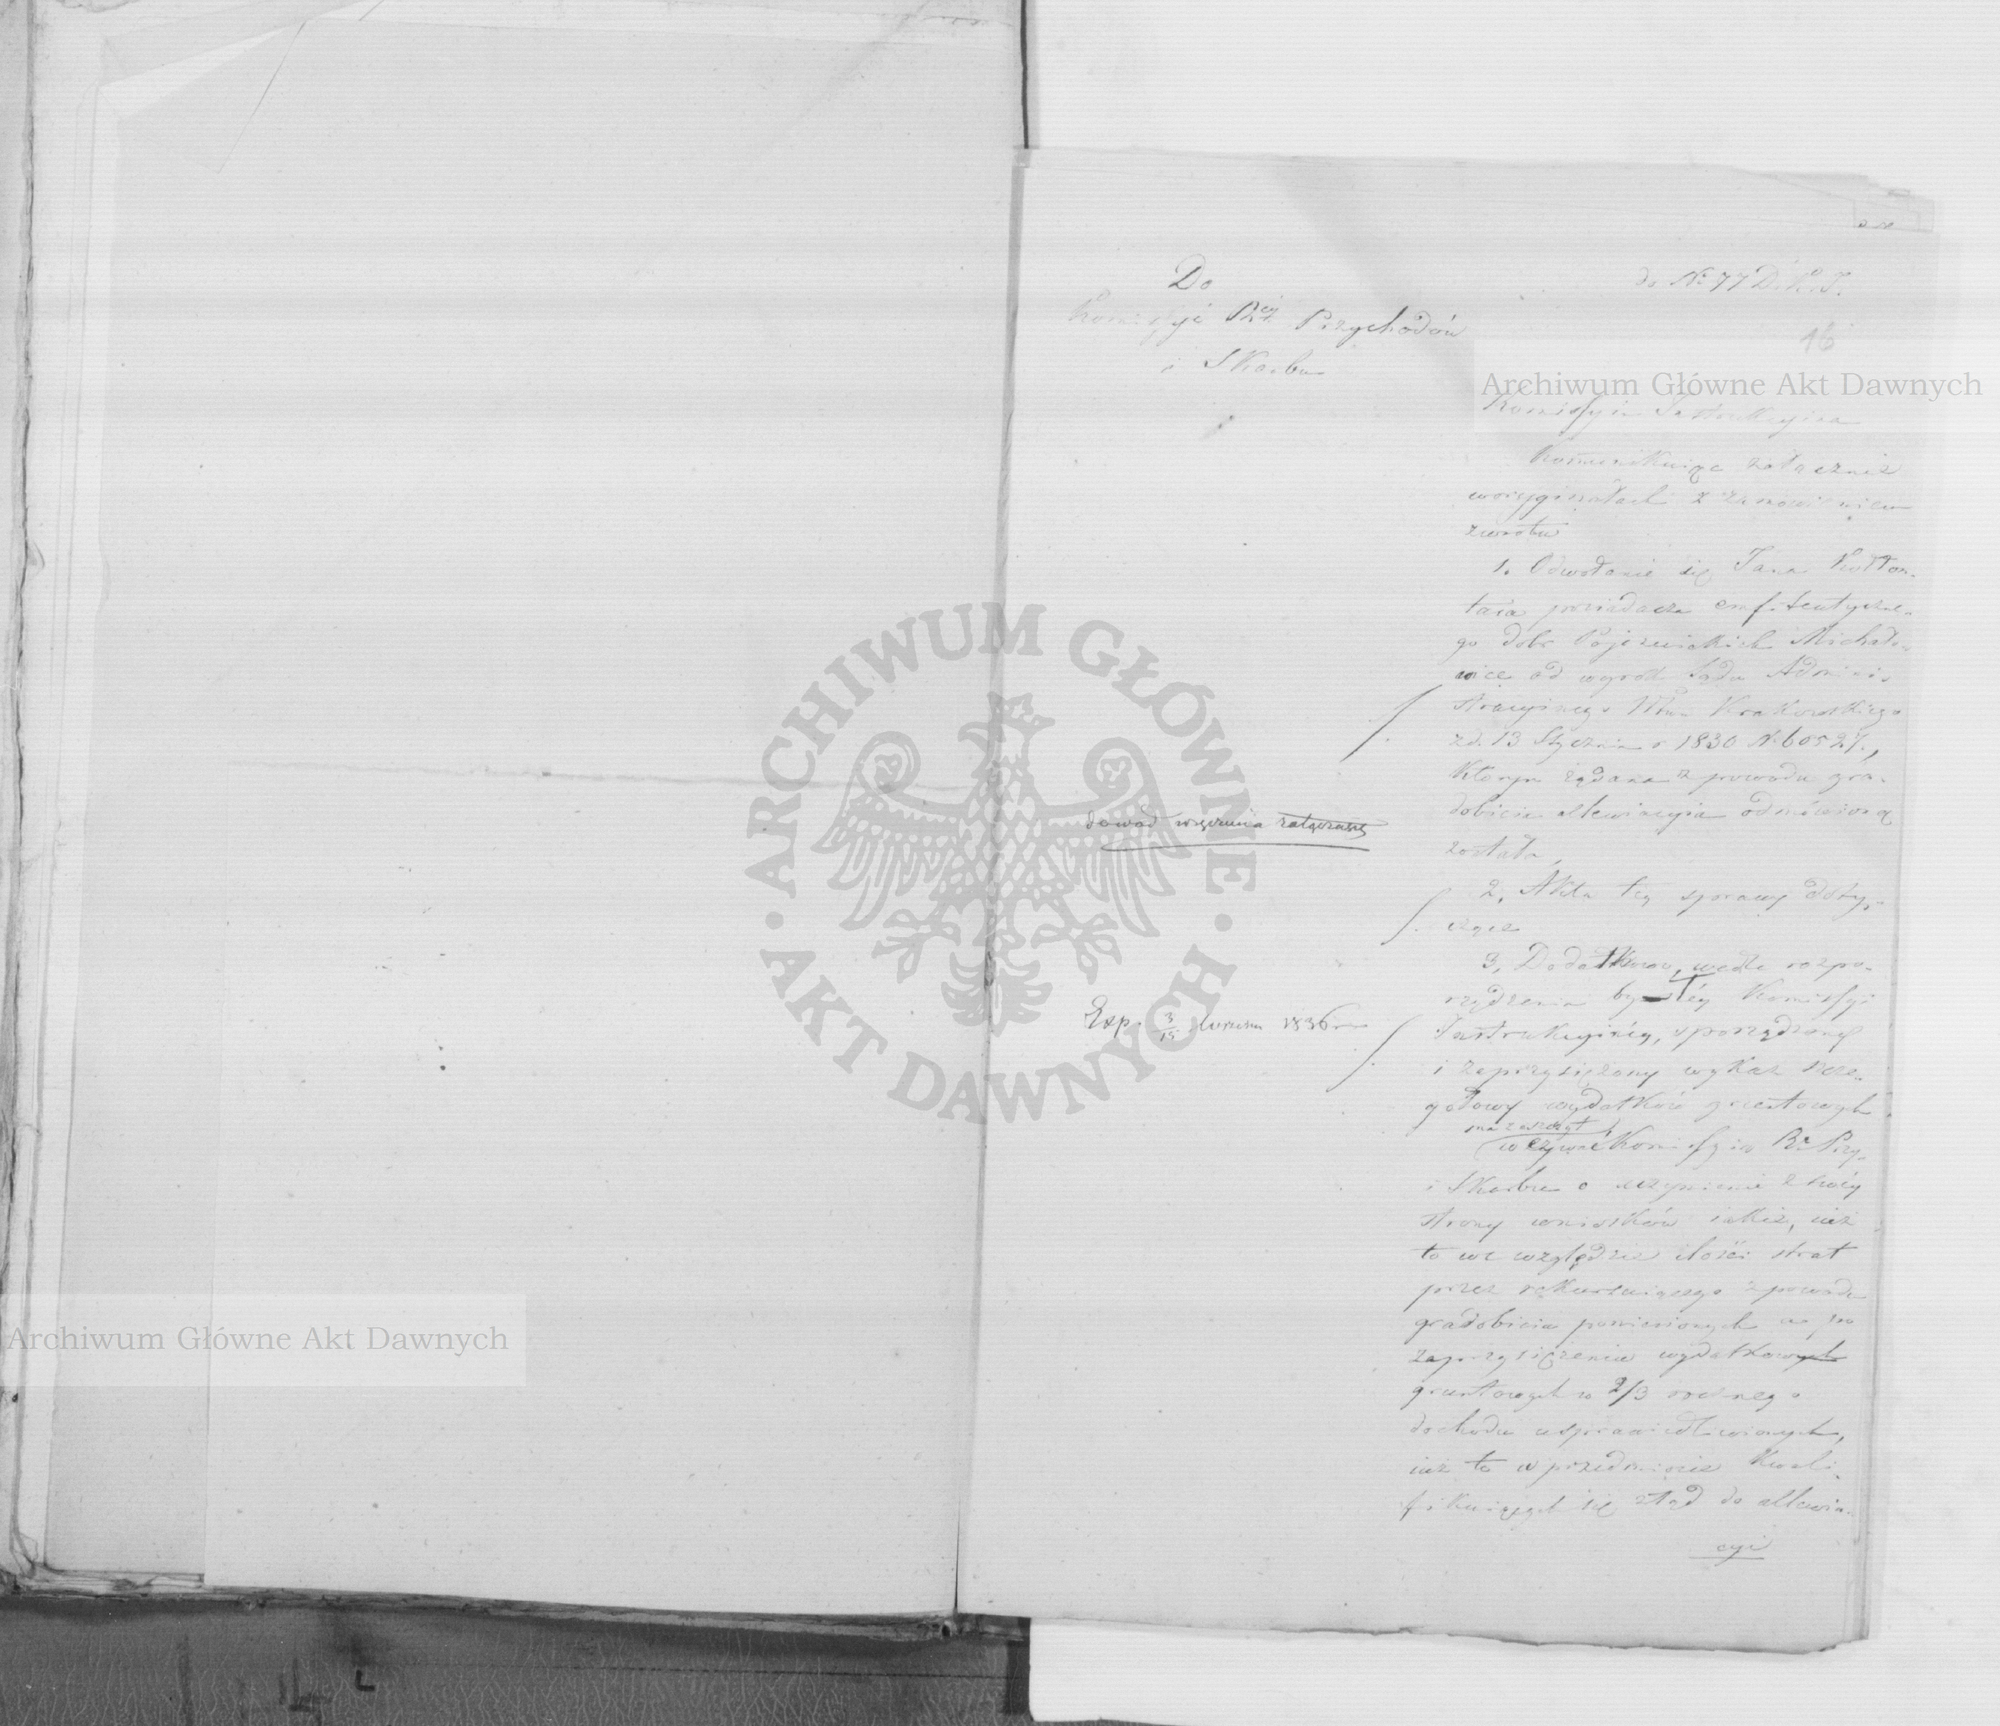 do Nº 77 D.K.I.
16
Do
Komissyi Rzey Przychodów
i Skarbu
Archiwum Główne Akt Dawnych
Komissyia Instrukcyina
Komunikuiąc załącznie
w oryginałach z zamówieniem
zwrotu
1. Odwołanie się Jana Kołłon-
taia posiadacza emfiteutyczne-
go dóbr Pojezuickich Michało-
wice od wyrok Sądu Admini-
stracyinego Wtwa Krakowskiego
z d. 13 Stycznia r. 1830 N. 60527.,
którym żądana z powodu gra-
dobicia allewiacyia odmówioną
została,
2, Akta tey sprawy doty-
czące
3, Dodatkowo, wedle rozpo-
rządzenia byłéy Komissyi
Instrukcyinéy, sporządzony
i zaprzysiężony wykaz szcze-
gółowy wydatków gruntowych
ma zaszczyt
wezwać Komissyią R. Przy.
i Skarbu o uczynienie z swéy
strony wniosków iakie, iuż
to we względzie ilości strat
przez rekursuiącego z powodu
gradobicia poniesionych a po
zaprzysiężeniu wydatkowych
gruntowych w 2/3 rocznego
dochodu usprawiedliwionych,
iuż to w przedmiocie kwali-
fikuiących się ztąd do allewia-
cyi
dowód wręczenia załączaię
Exp. 3/15 1836 r
ARCHIWUM GŁÓWNE
AKT DAWNYCH
Archiwum Główne Akt Dawnych